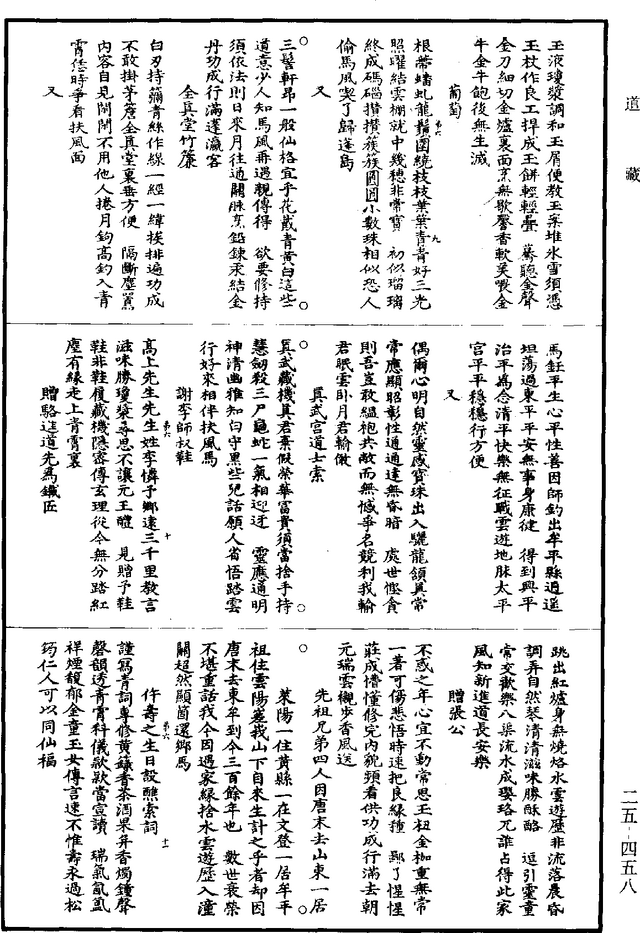 道藏
玉液瓊漿調和玉屑便教玉案堆氷雪須憑
玉杖作良工捍成玉餅輕輕疊 驀聽金聲
金刀細切金爐裏面烹無歇馨香軟美喫金
牛金牛飽後無生滅
葡萄
根蔕蟠虬龍鬚圍繞枝枝葉葉青青好三光
照躍結雲棚就中幾穗非常寶 初似瑠璃
終成碼碯攢攢簇簇圓圓小數珠相似恐人
偷馬風喫了歸蓬島
又
三髻軒昂一般仙格宜乎花戴青黃白這些
道意少人知馬風再遇親傳得 欲要修持
須依法則日來月往通關脉烹鉛鍊汞結金
丹功成行滿蓬瀛客
全真堂竹簾
白刃持篾青絲作線一經一緯挨排遍功成
不敢掛茅簷全真堂裏垂方便 隔斷塵囂
內容自見閑閑不用他人捲月鈎高釣入青
霄恁時爭看扶風面
又
馬鈺平生心平性善因師釣出牟平縣逍遙
坦蕩過東平平安無事身康健 得到興平
治平爲念清平快樂無征戰雲遊地脉太平
宮平平穩穩行方便
又
偶爾心明自然靈感寶珠出入驪龍頷真常
常應顯昭彰性通通達無昏暗 處世慳貪
則吾豈敢縕袍共敝而無憾爭名競利我輸
君眠雲卧月君輸俺
真武宮道士索
真武藏機真君棄假榮華富貴須當捨手持
慧劒殺三尸龜蛇一氣相迎迓 靈應通明
神清幽雅知白守黑些兒話願人省悟踏雲
行好來相伴扶風馬
謝李師叔鞋
高上先生先生姓李憐予鄉遠三千里教言
滋味勝瓊漿尋思不讓元王醴 見贈予鞋
鞋非鞋履藏機隱密傳玄理從今無分踏紅
塵有緣走上青霄裏
贈駱進道先爲鐵匠
跳出紅爐身無燒烙水雲遊歷非流落晨昏
調弄自然琴清清滋味勝酥酪 逗引靈童
常交歡樂八渠流水成瓔珞兀誰占得此家
風知新進道長安樂
贈張公
不惑之年心宜不動常思玉杻金枷重無常
一著可傷悲悟時速把良緣種 鄙了惺惺
莊成懵懂修完內貌看供功成行滿去朝
元瑞雲襯步香風送
先祖兄弟四人因唐末去山東一居
萊陽一住黃縣一在文登一居牟平
祖住雲陽嵳峩山下自來生計之乎者却因
唐末去東牟到今三百餘年也 數世衰榮
不堪重話我今因遇家緣捨水雲遊歷入潼
關超然顯箇還鄉馬
仵壽之生日設醮索詞
謹寫青詞專修黃籙香茶酒果并香燭鐘聲
磬韻透青霄科儀欵欵當宣讀 瑞氣氤氳
祥煙馥郁金童玉女傳言速不惟壽永過松
筠仁人可以同仙福
二五-四五八